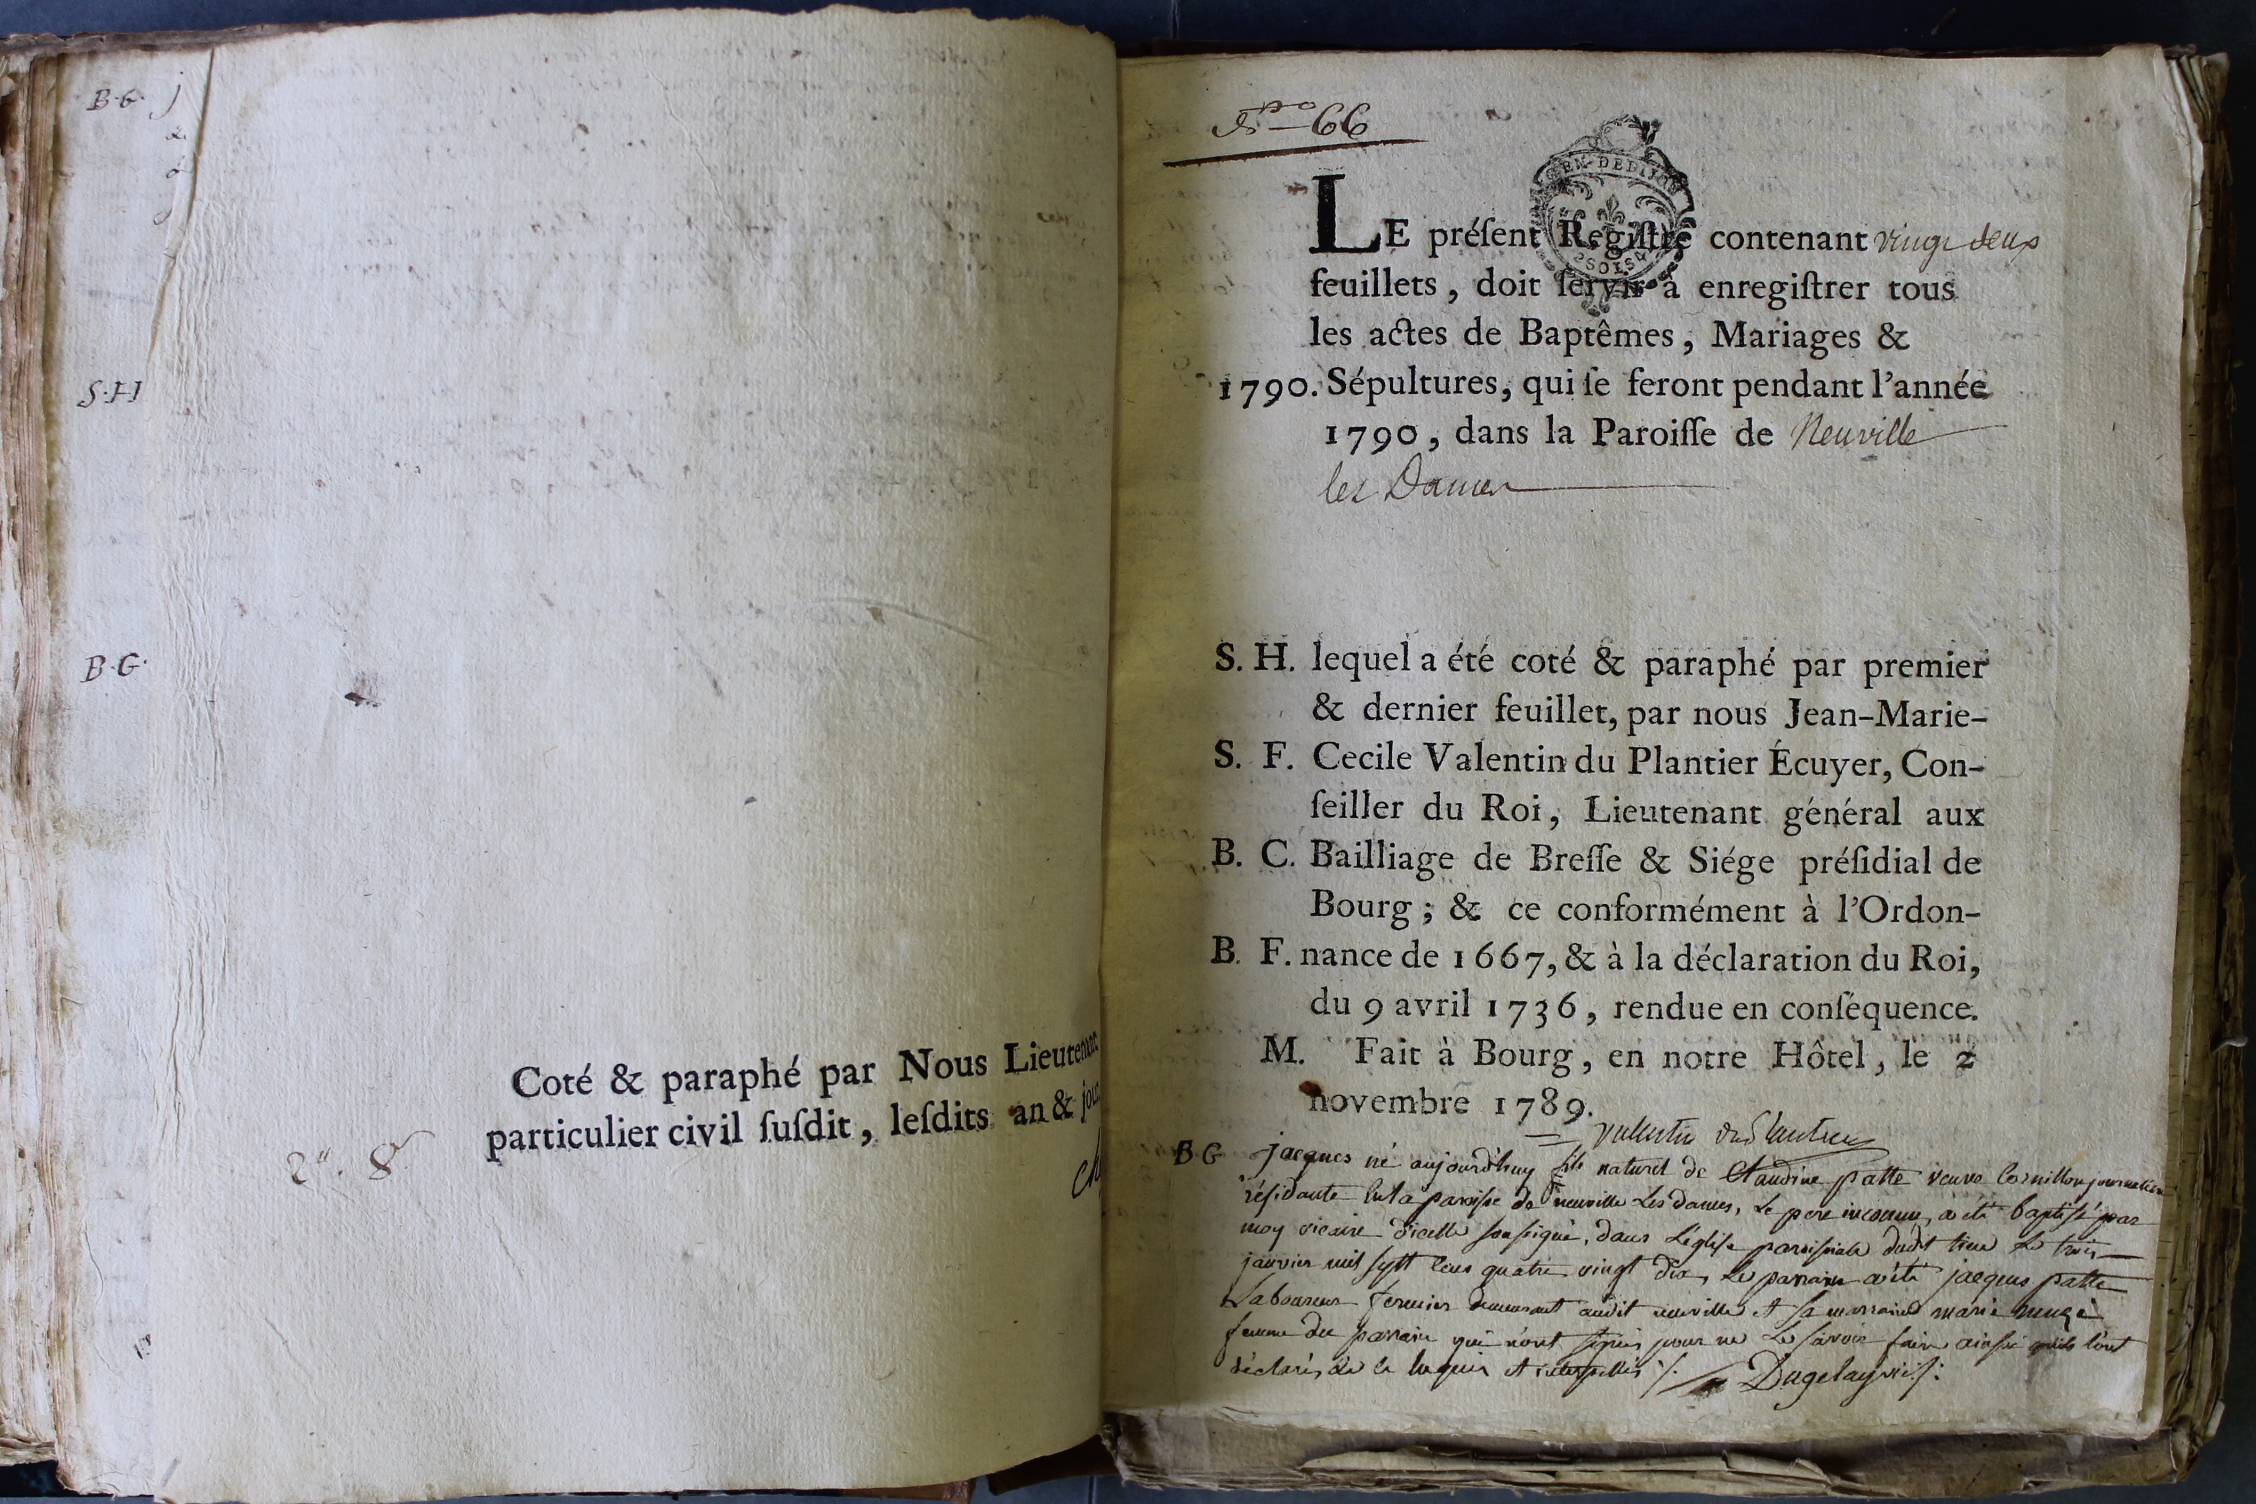 B.G. j
S.H
B.G.
Coté & paraphé par Nous Lieutenant
particulier civil ſuſdit, leſdits an & jour
No 66
LE préſent Regiſtre contenant vingt deux
feuillets, doit ſervir à enregiſtrer tous
les actes de Baptêmes, Mariages &
1790. Sépultures, qui ſe feront pendant l'année
1790, dans la Paroiſſe de Neuville
les Dames
S. H. lequel a été coté & paraphé par premier
& dernier feuillet, par nous Jean-Marie-
S. F. Cecile Valentin du Plantier Écuyer, Con-
ſeiller du Roi, Lieutenant général aux
B. C. Bailliage de Breſſe & Siége préſidial de
Bourg; & ce conformément à l'Ordon-
B. F. nance de 1667, & à la déclaration du Roi,
du 9 avril 1736, rendue en conſéquence.
M. Fait à Bourg, en notre Hôtel, le 2
novembre 1789.
valentin duplantier
B G jacques né aujourd'huy fils naturel de Claudine patte veuve Cornillon journaliere
résidante en la paroisse de neuville Les dames, Le pere inconnu, a été baptisé par
moy vicaire d'icelle soussigné, dans L'église paroissiale dudit lieu Le trois
janvier mil sept cens quatre vingt dix, Le parrain a été jacques patte
Laboureur fermier demeurant audit neuville et sa marraine marie
femme du parrain qui n'ont signés pour ne Le savoir faire ainsi qu'ils l'ont
déclarés de ce requis et interpellés
Dugelay vic: